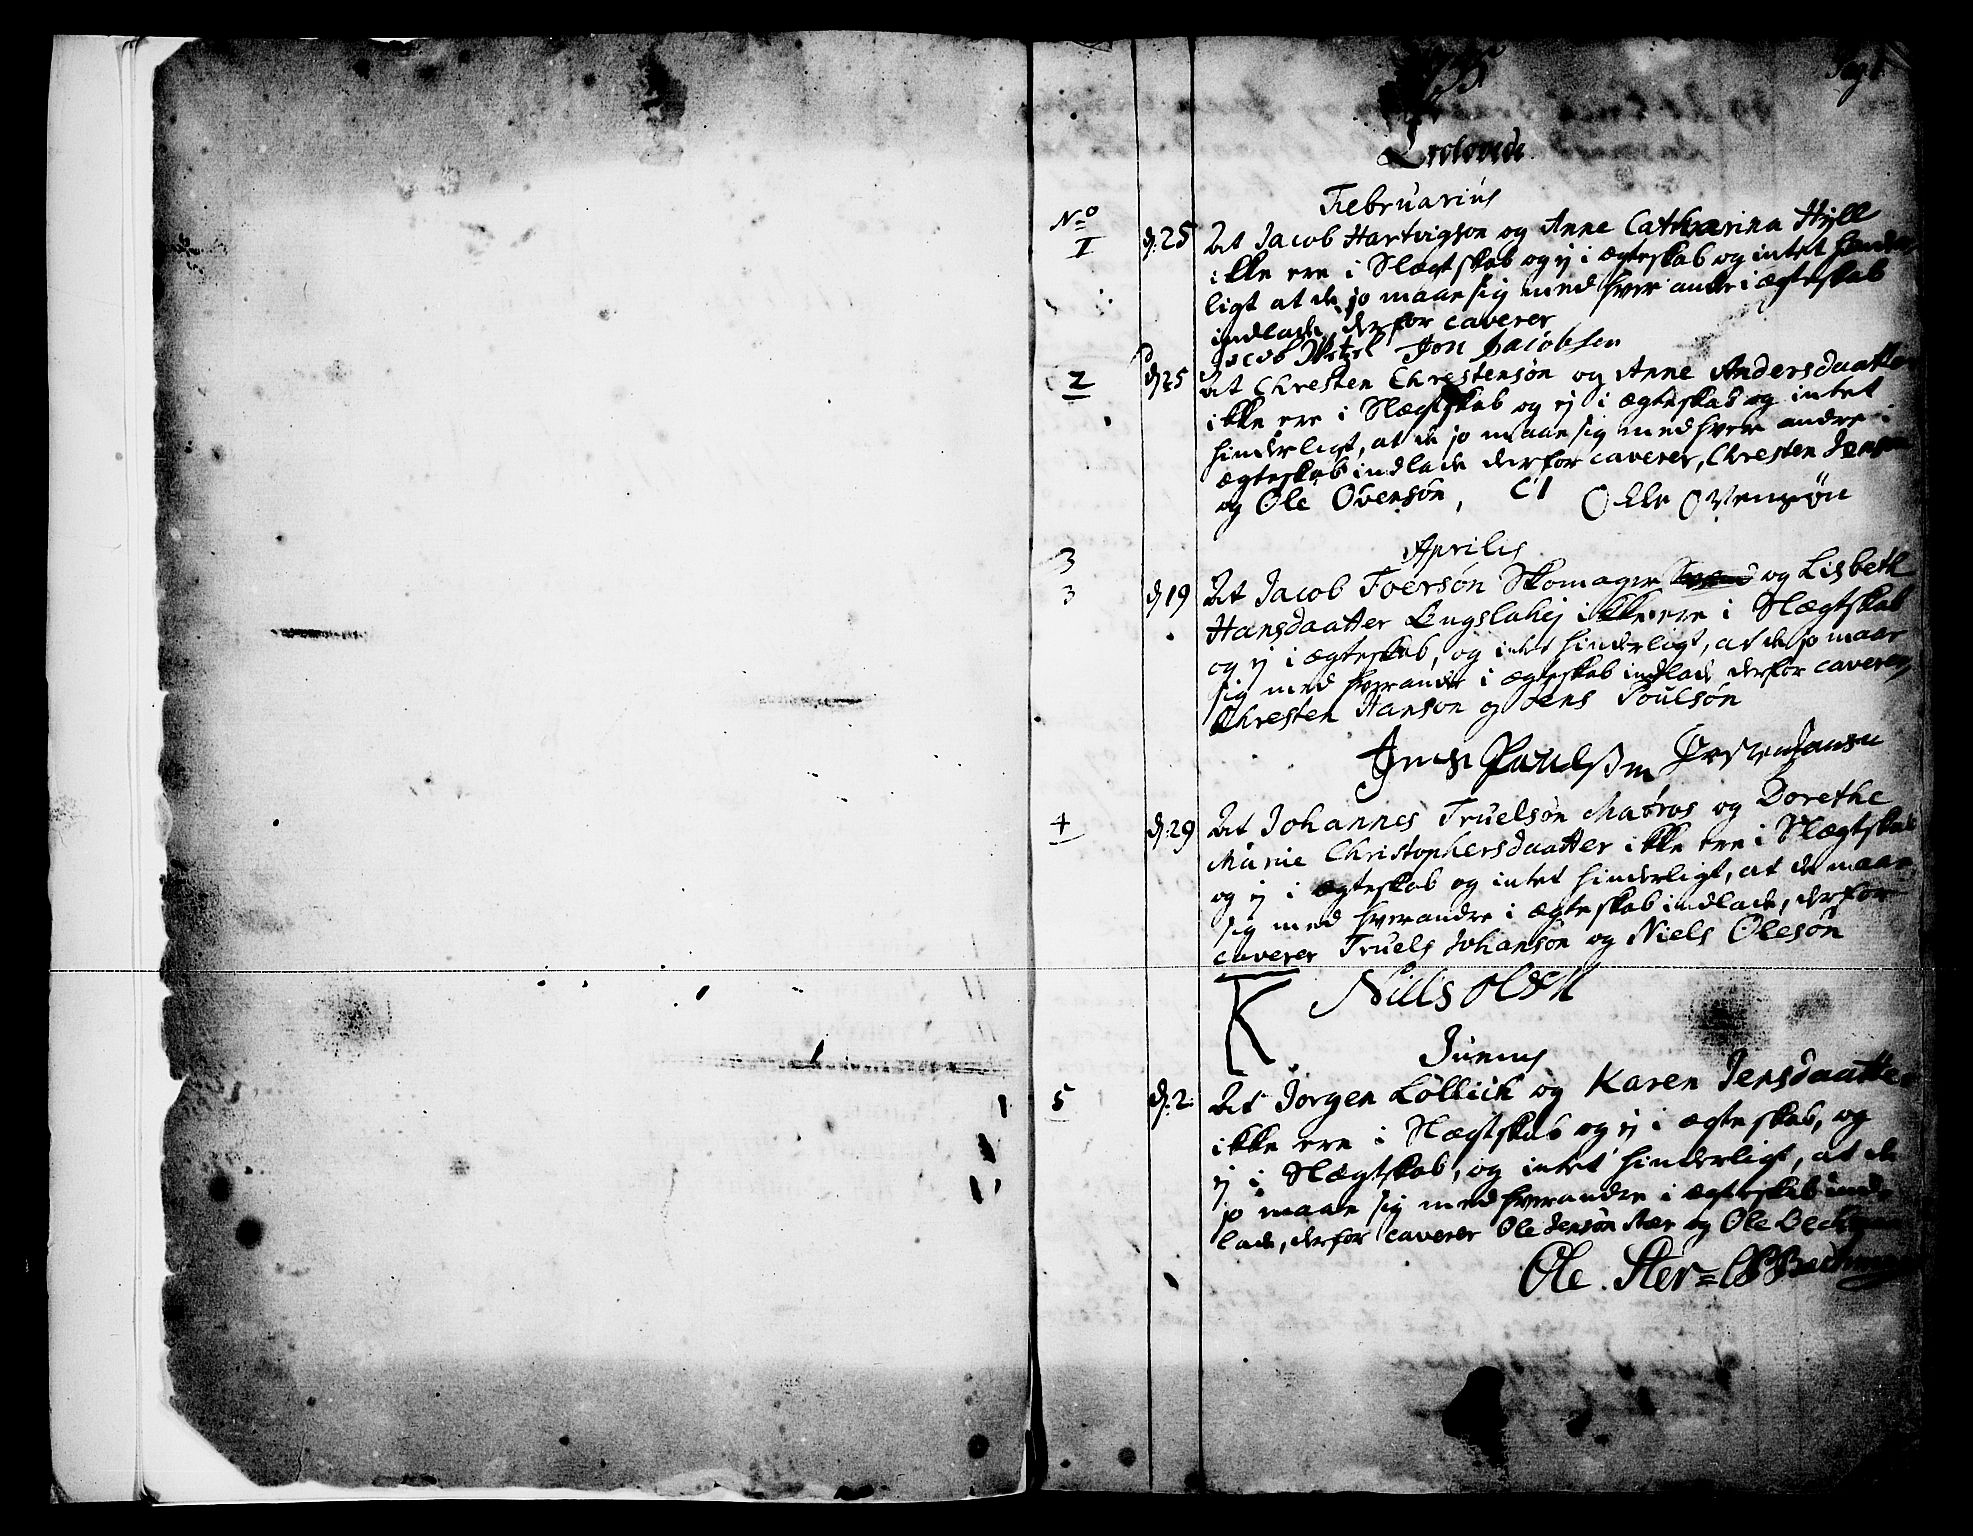 Pag 1
Trolovede
Februarius
No
1 d. 25 At Jacob Hartvigson og Anne Catharina Hyll
ikke ere i Slægtskab og ej i ægteskab og intet hinder
ligt at de jo maae sig med hver andre i ægteskab
indlade, derfor caverer
Jacob Jon Jacobsen
2 d 25 At Christen Christensøn og Anne Andersdaatter
ikke ere i Slægtskab og ej i ægteskab og intet
hinderligt, at de jo maae sig med hver andre i
ægteskab indlade derfor caverer, Christen Jensen
og Ole Ovensøn, Olle Ovensøn
Aprilis
3
3 d 19 At Jacob Toersøn Skomager og Lisbeth
Hansdaatter ikke ere i Slægtskab
og ej i ægteskab, og intet hinderligt, at de jo maae
sig med hverandre i ægteskab indlade derfor caverer,
Christen Hanson og Jens Poulsøn
Jens Paulsen
4 d. 29 At Johannes Truelsøn Matros og Dorethe
Marie Christophersdaatter ikke ere i Slægtskab
og ej i ægteskab og intet hinderligt, at de maae
sig med hverandre i ægteskab indlade, derfor
caverer Truels Johanson og Niels Olesøn
Niels Olsen
Junius
5 d. 2 At Jørgen Løllich og Karen Jensdaatter
ikke ere i Slægtskab og ej i ægteskab, og
ej i Slægtskab, og intet hinderligt, at de
jo maae sig med hverandre i ægteskab ind
lade, derfor caverer Ole Jensøn og Ole
Ole